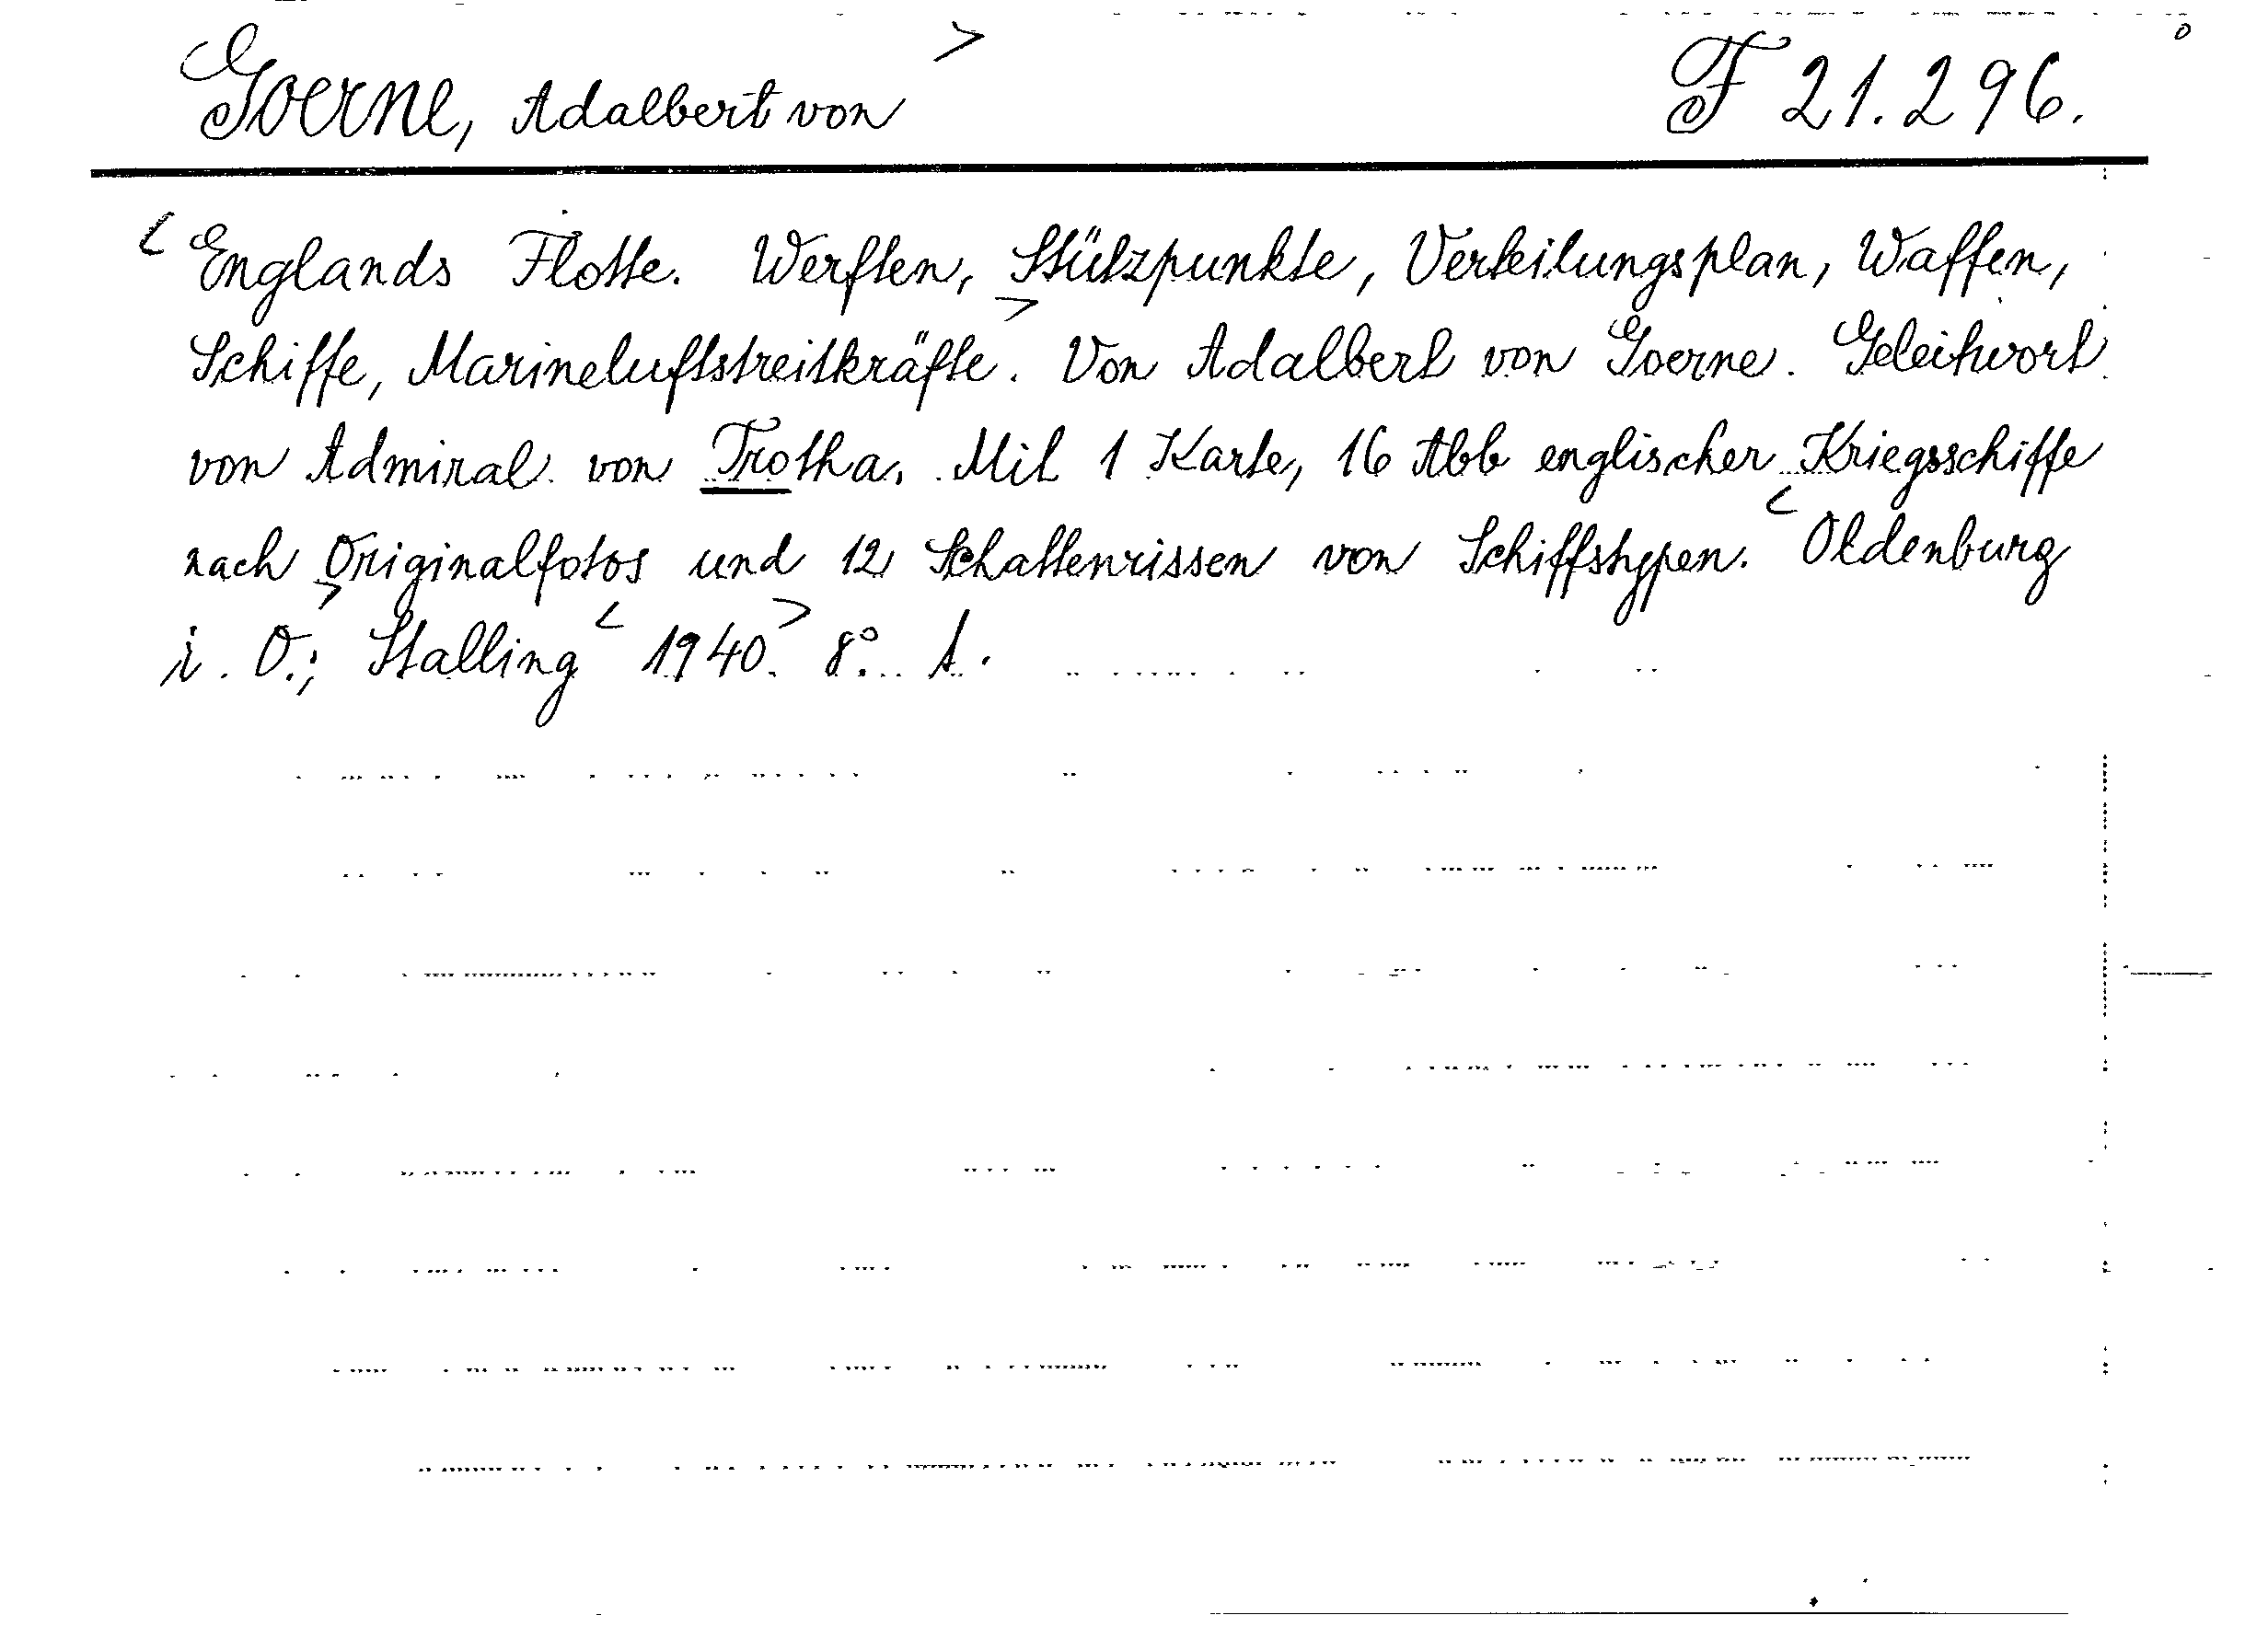 Goerne, Adalbert von > F 21.296.
< Englands Flotte. Werften, Stützpunkte, Verteilungsplan, Waffen,
Schiffe, Marineluftstreitkräfte. > Von Adalbert von Goerne. Geleitwort
von Admiral von Trotha. Mit 1 Karte, 16 Abb englischer Kriegsschiffe
nach Originalfotos und 12 Schattenrissen von Schiffstypen. < Oldenburg
i. O.; > Stalling < 1940. > 8°. 1.